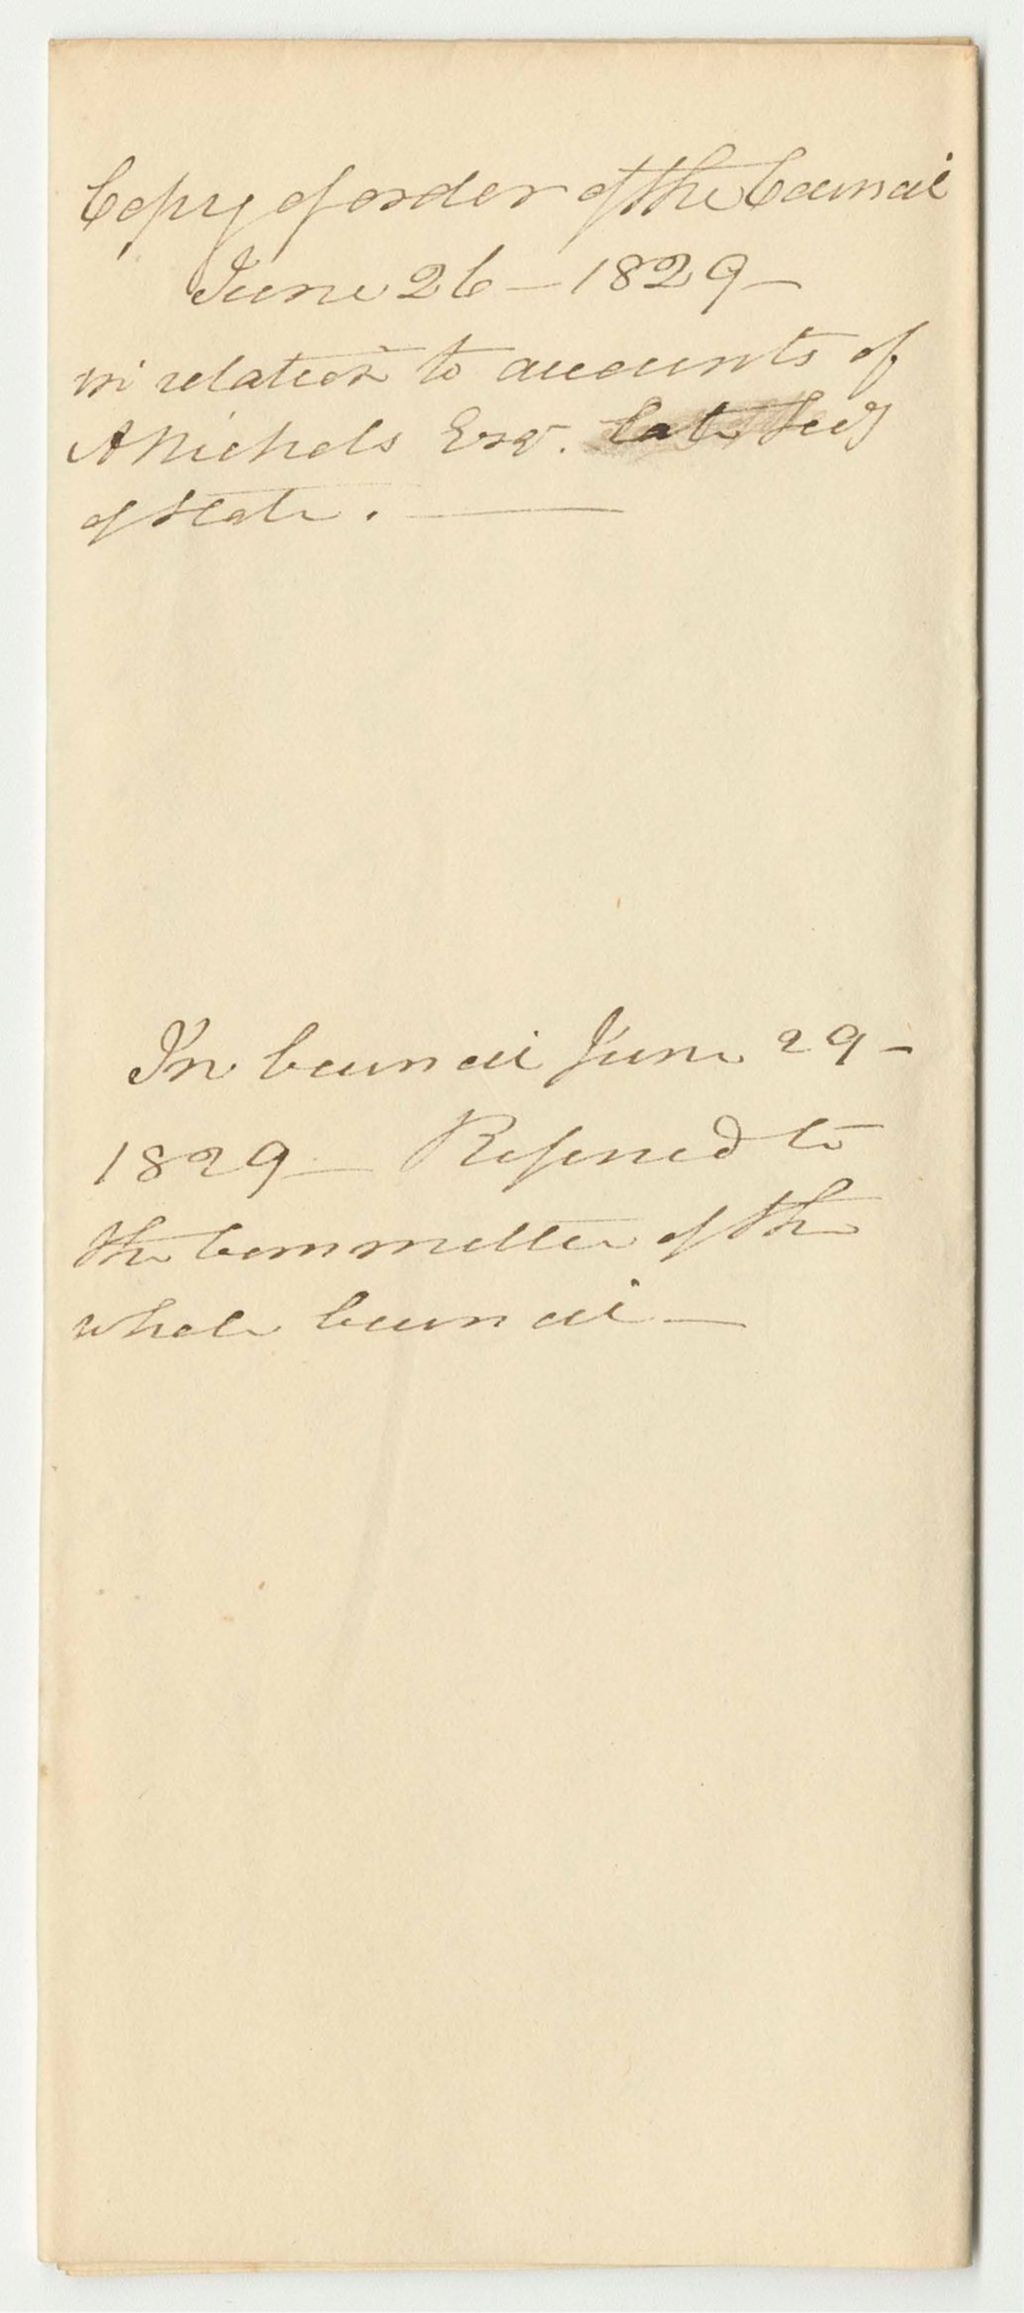 Copy of order of the Council
June 26 - 1829 -
in relation to accounts of
A Nichols Esqr. late Secy
of State.
In Council June 29 -
1829 - Referred to
the Committee of the
whole Council -